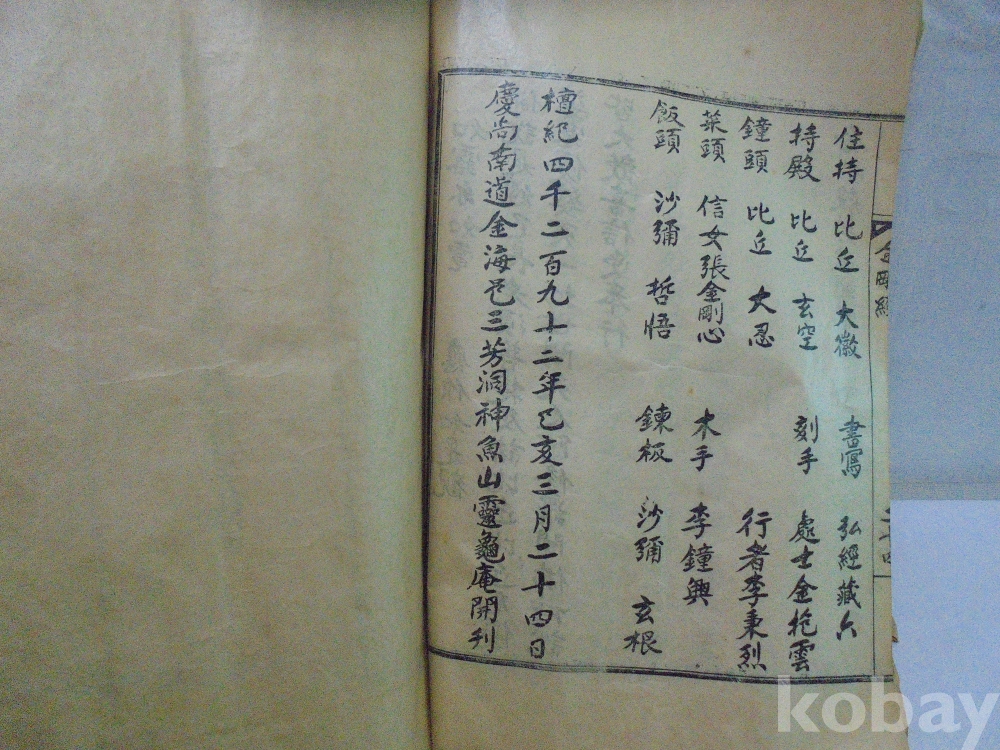 住持 比丘 大徽 書寫 弘經藏六
持殿 比丘 玄空 刻手 處士金抱雲
鐘頭 比丘 大忍 行者李秉烈
菜頭 信女張金剛心 木手 李鐘興
飯頭 沙彌 哲悟 鍊板 沙彌 玄根
檀紀四千二百九十二年己亥三月二十四日
慶尚南道金海邑三芳洞神魚山靈龜庵開刊
金剛經
二十四
kobay